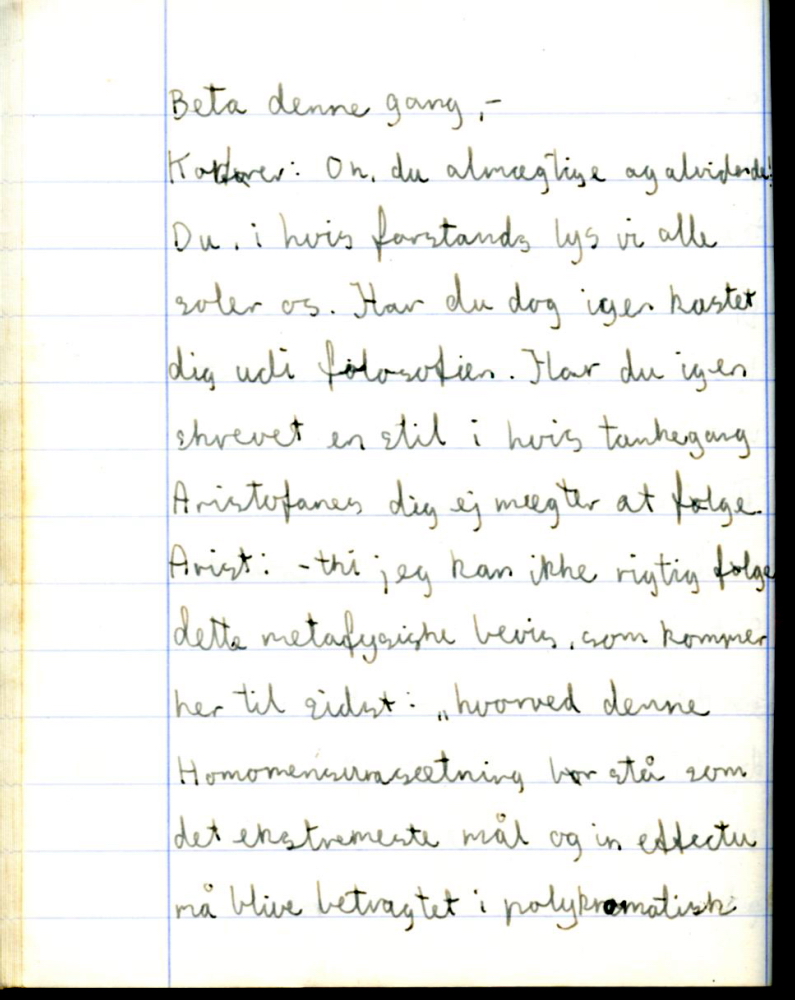 Beta denne gang,-
Oh, du almægtige og alvidende!
Du, i hvis forstands lys vi alle
soler os. Har du dog igen kastet
dig udi filosofien. Har du igen
skrevet en stil i hvis tankegang
Aristofanes dig ej mægter at følge
Arist: -thi jeg kan ikke rigtig følge
dette metafysiske bevis, som kommer
her til sidst: „hvorved denne
Homomensurasætning bør stå som
det ekstremeste mål og in effectu
må blive betragtet i polykromatisk